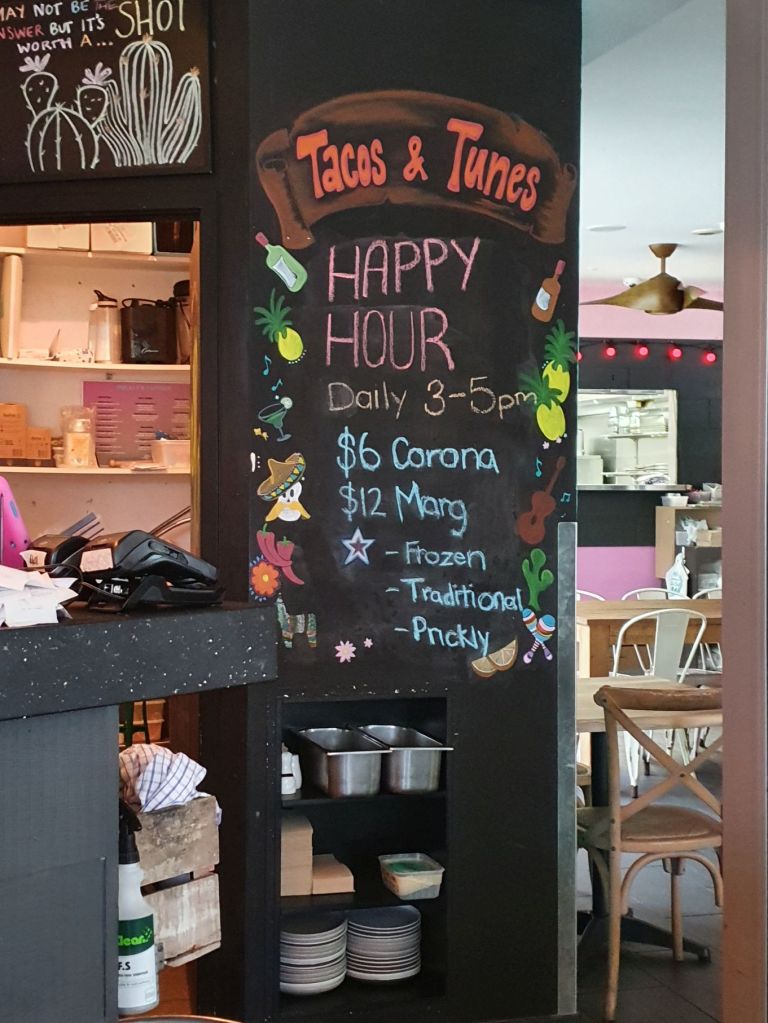 MAY NOT BE THE
ANSWER BUT IT'S
WORTH A... SHOT
Tacos & Tunes
HAPPY
HOUR
Daily 3-5pm
$6 Corona
$12 Marg
- Frozen
- Traditional
- Prickly
Clear
F.S